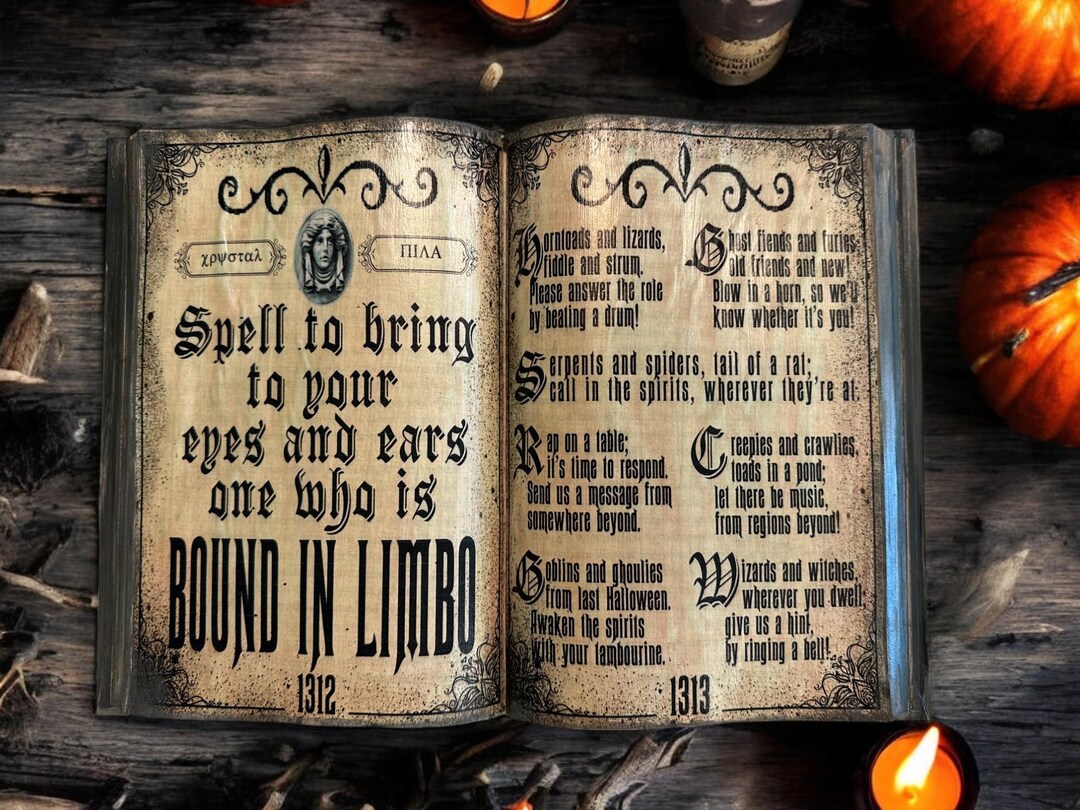 χρψσταλ
ΠΙΛΑ
Spell to bring
to your
eyes and ears
one who is
BOUND IN LIMBO
1312
Horntoads and lizards,
fiddle and strum.
Please answer the role
by beating a drum!
Ghost fiends and furies,
old friends and new!
Blow in a horn, so we'll
know whether it's you!
Serpents and spiders, tail of a rat;
call in the spirits, wherever they're at.
Rap on a table;
it's time to respond.
Send us a message from
somewhere beyond.
Creepies and crawlies,
toads in a pond;
let there be music,
from regions beyond!
Goblins and ghoulies
from last Halloween.
Awaken the spirits
with your tambourine.
Wizards and witches,
wherever you dwell,
give us a hint,
by ringing a bell!
1313